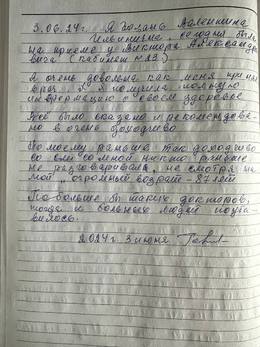 3.06.24г. Я Гозань Валентина
Ильинична, сегодня была
на приёме у Виктора Александро
вича (кабинет №22)
Я очень довольна как меня принял
врач. Я получила полную
информацию о своем здоровье
Всё было сказано и рекомендова-
но в очень доходчиво
По моему раньше так доходчиво
со мной никто раньше
не разговаривал, не смотря на
мой огромный возраст - 87 лет
По больше бы таких докторов,
тогда и больных людей поуба
вилось.
2024 г. 3 июня